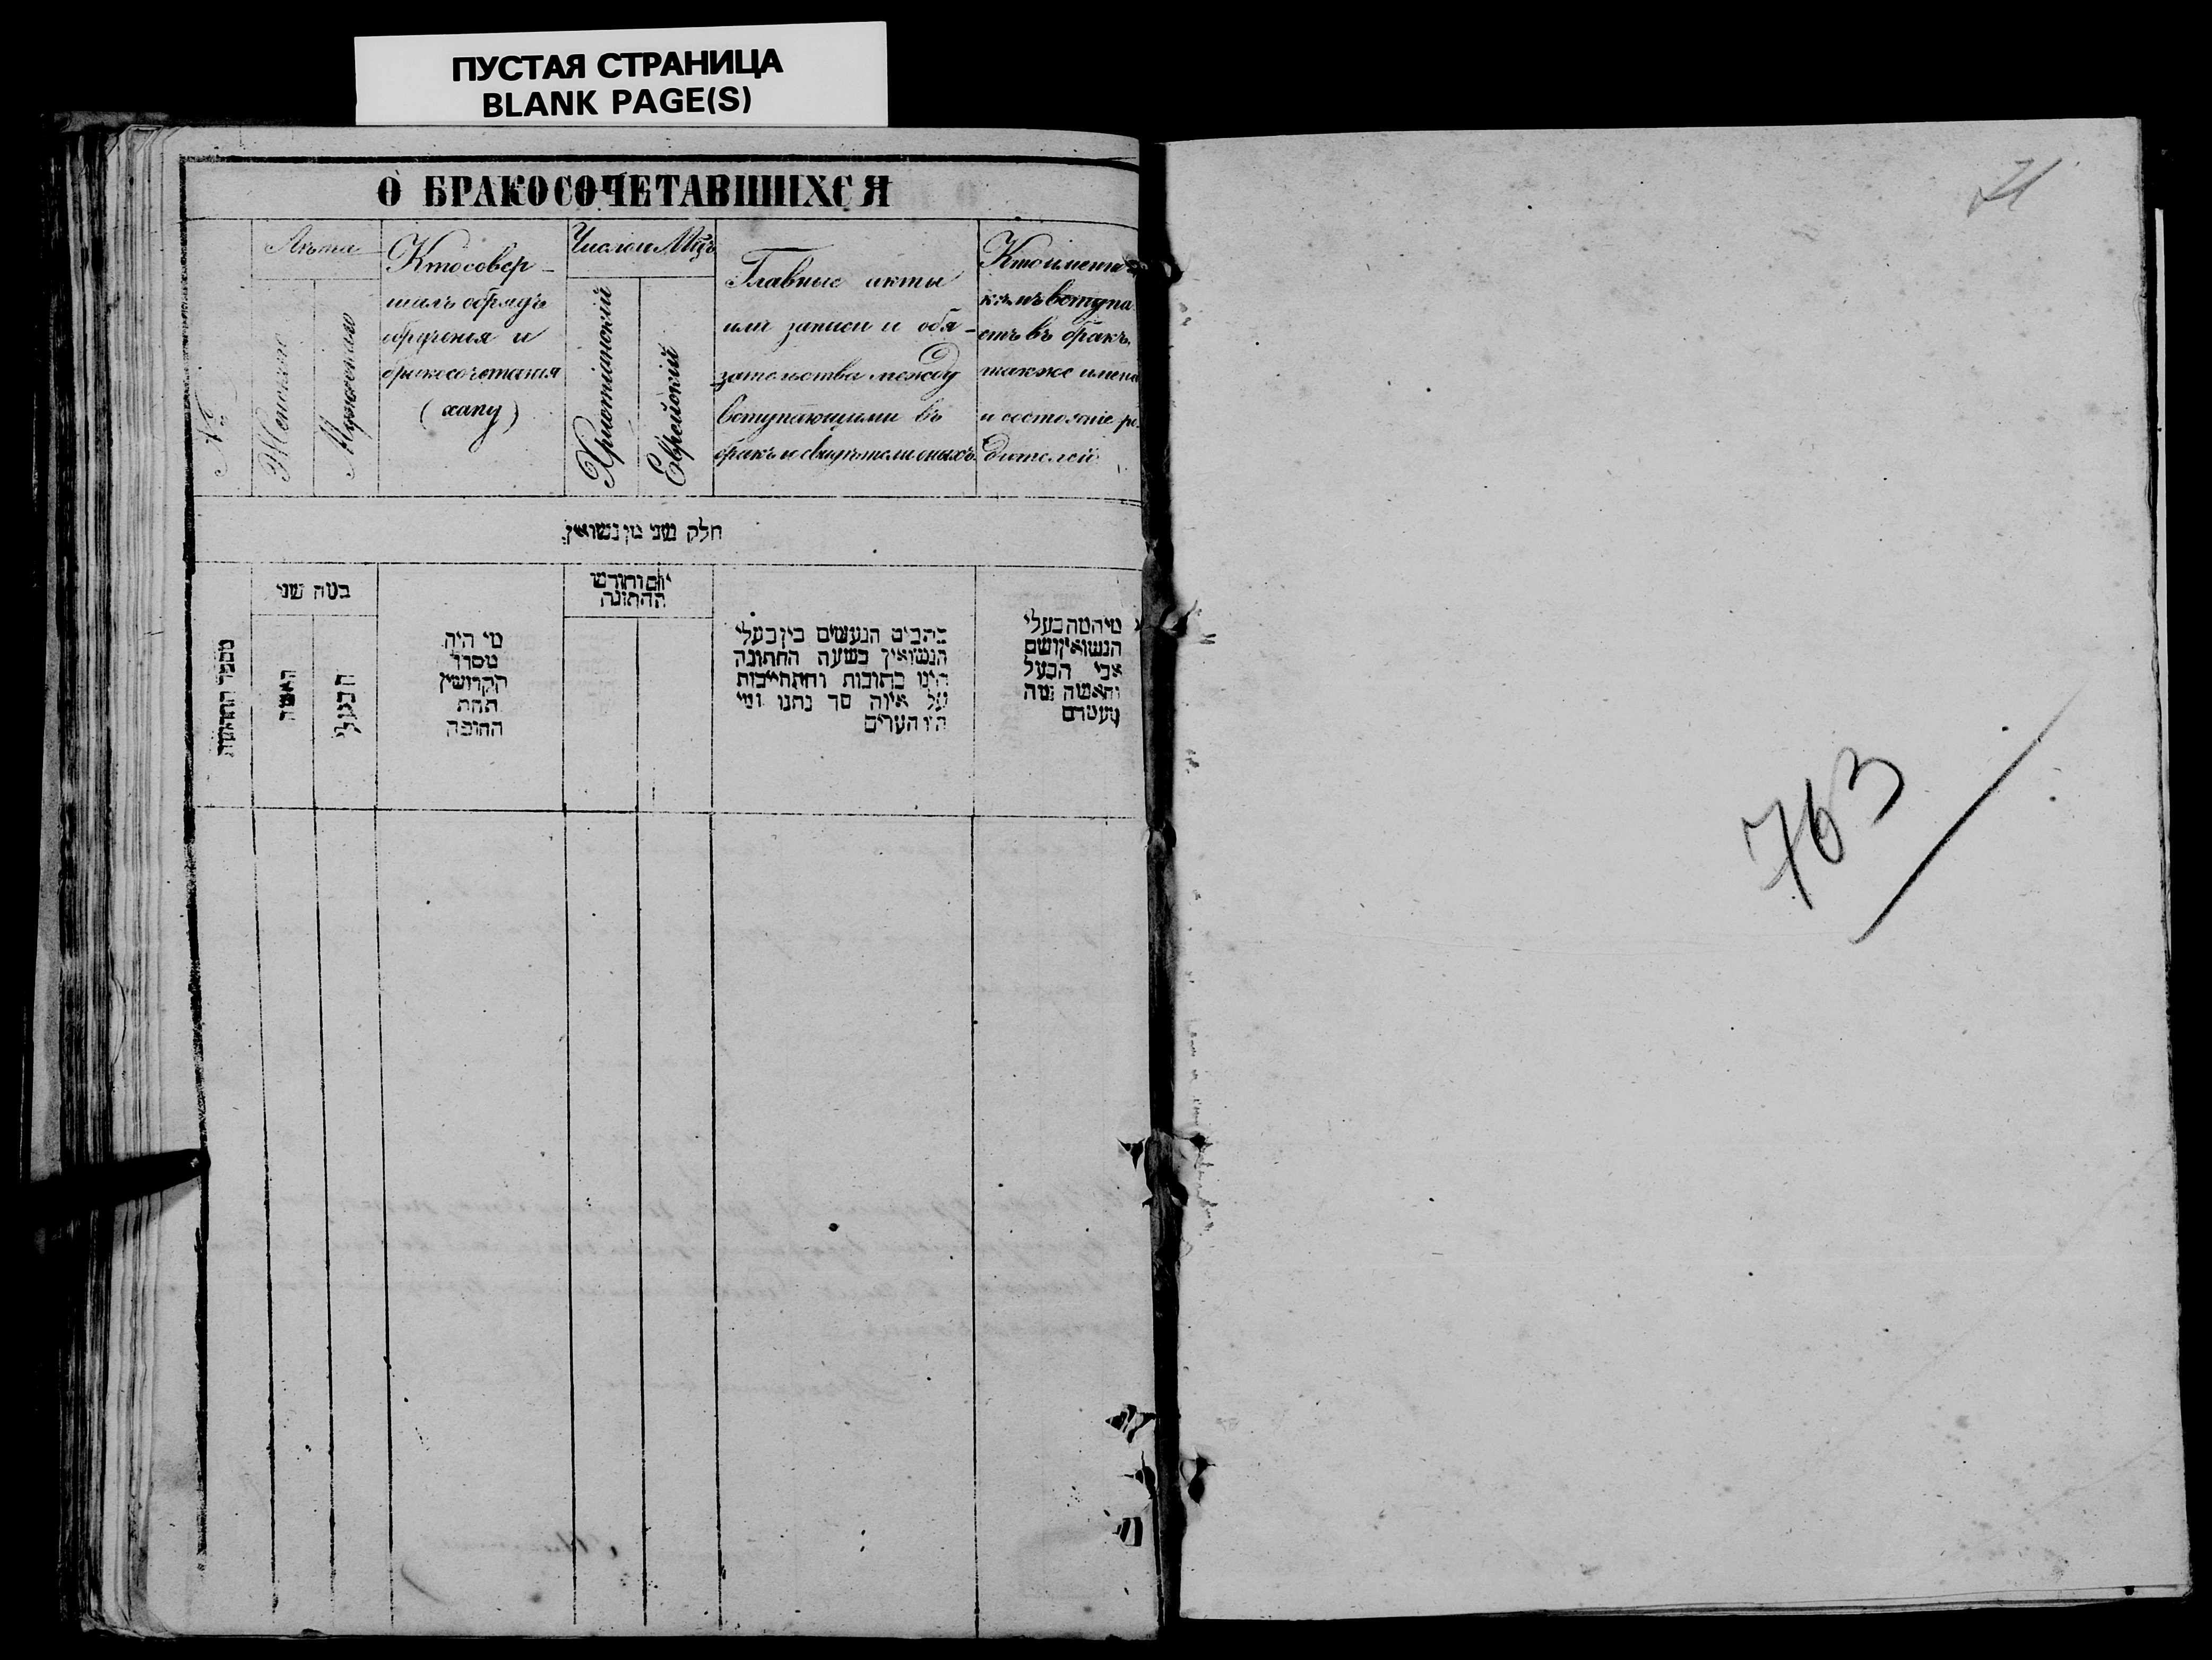 ПУСТАЯ СТРАНИЦА
BLANK PAGE(S)
О БРАКОСОЧЕТАВШИХСЯ
№
Лѣта
Женскаго
Мужескаго
Кто совер-
шалъ обрядъ
обрученія и
бракосочетанія
(хапу)
Число и Мцъ
Христіанскій
Еврейскій
Главные акты
или записи и обя-
зательства между
вступающими въ
бракъ и свидѣтели оныхъ
Кто именно
съ кѣмъ вступа
етъ въ бракъ,
также имена
и состояніе ро-
дителей
חלק שני מן נשואין
מספר החתונות
כמה שני
האשה
הבעל
מי היה
מסדר
הקדושין
תחת
החופה
יום וחודש
החתונה
כתבים הנעשים בין בעלי
הנשואין בשעת החתונה
היינו כתובות והתחייבות
על איזה סך נתנו ומי
היו העדים
מי המה בעלי
הנשואין ושם
אבי הבעל
והאשה ומה
מעמדם
71
763